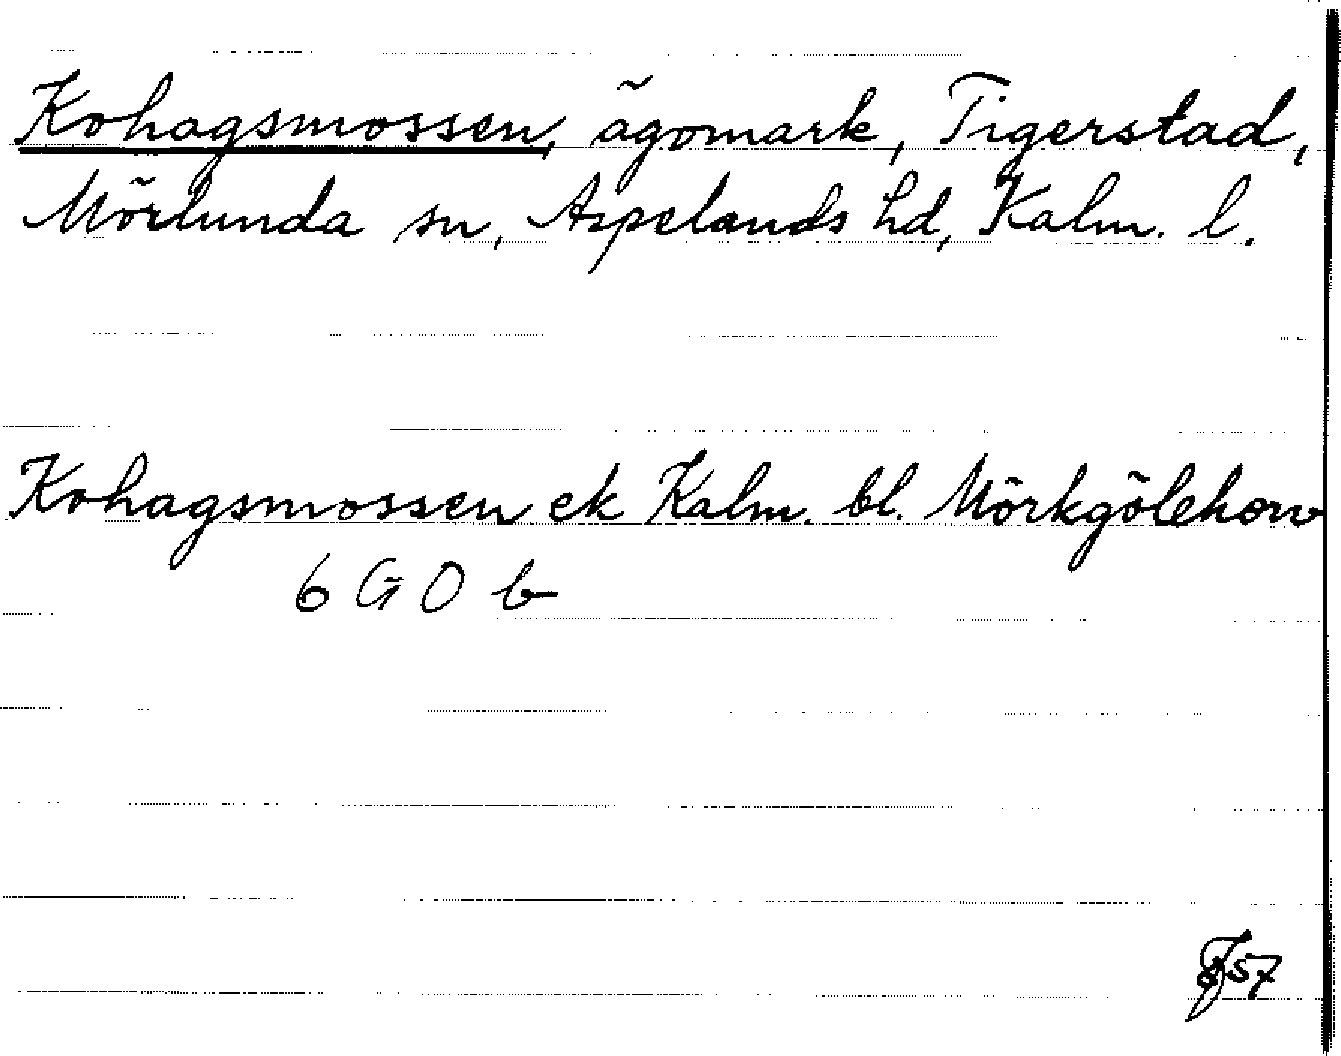 Kohagsmossen, ägomark, Tigerstad,
Mörlunda sn, Aspelands hd, Kalm. l.
Kohagsmossen ek Kalm. bl. Mörkgölehorv
6 G O b
57